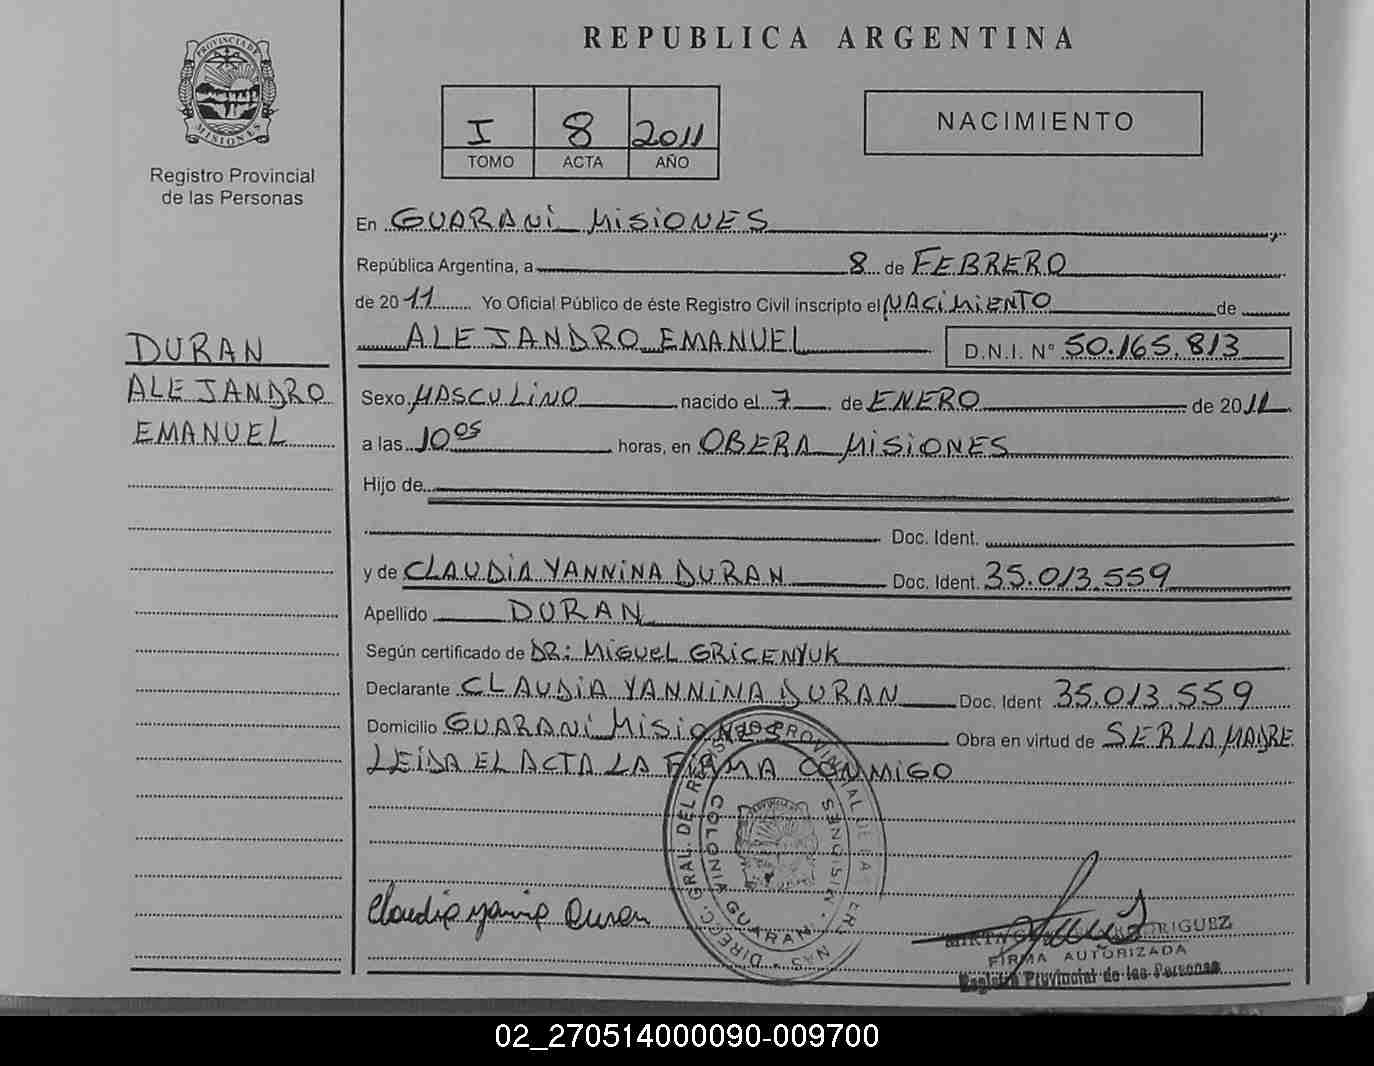 REPUBLICA ARGENTINA
PROVINCIA DE
MISIONES
Registro Provincial
de las Personas
I 8 2011
TOMO ACTA AÑO
NACIMIENTO
En GUARANI MISIONES
República Argentina, a 8 de FEBRERO
de 2011 Yo Oficial Público de éste Registro Civil inscripto el NACIMIENTO de
ALEJANDRO EMANUEL D.N.I. N° 50.165.813
DURAN
ALEJANDRO
EMANUEL
Sexo MASCULINO nacido el 7 de ENERO de 2011
a las 10 05 horas, en OBERA MISIONES
Hijo de
Doc. Ident.
y de CLAUDIA YANNINA DURAN Doc. Ident. 35.013.559
Apellido DURAN
Según certificado de DR: MIGUEL GRICENYUK
Declarante CLAUDIA YANNINA DURAN Doc. Ident 35.013.559
Domicilio GUARANI MISIONES Obra en virtud de SER LA MADRE
LEIDA EL ACTA LA FIRMA CONMIGO
DIRECC. GRAL. DEL REGISTRO PROVINCIAL DE LAS PERSONAS
COLONIA GUARANI - MISIONES
Claudia Duran
RODRIGUEZ
FIRMA AUTORIZADA
Registro Provincial de las Personas
02_270514000090-009700